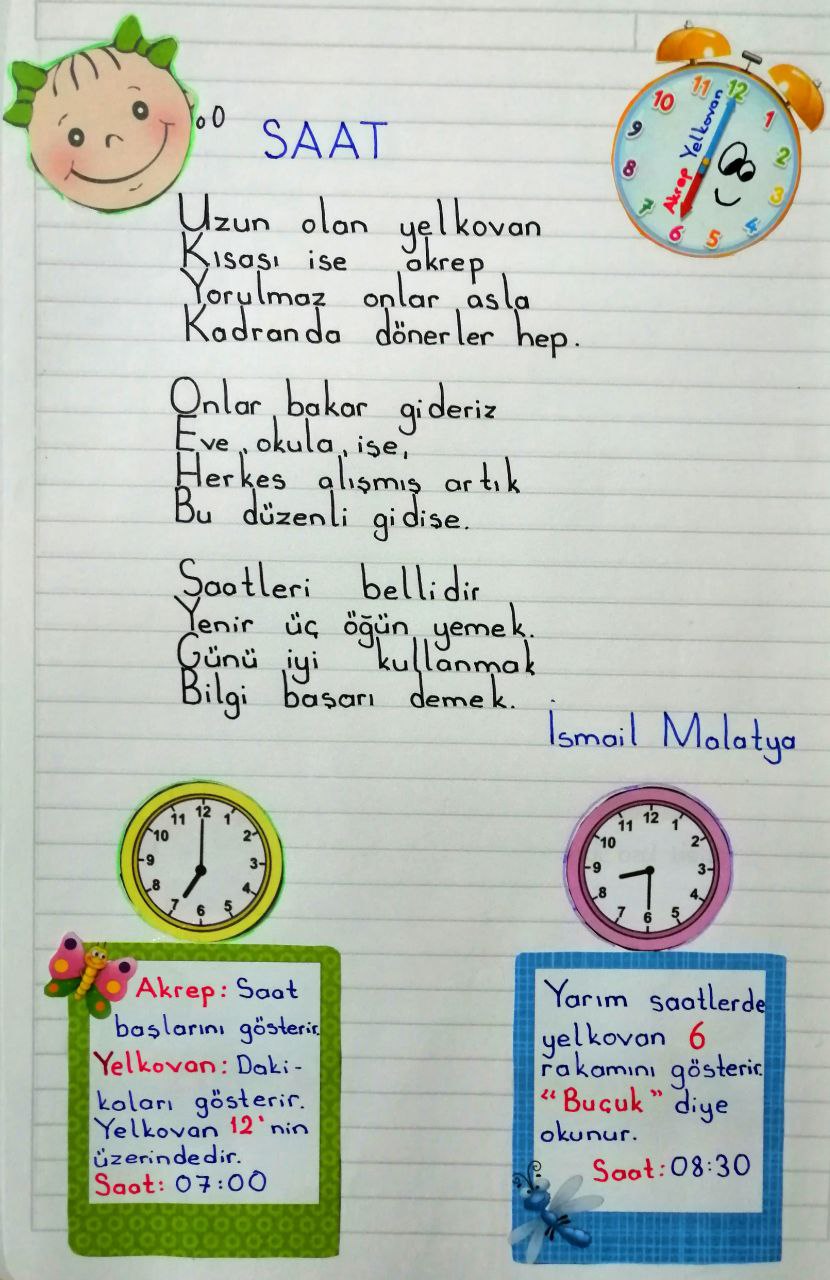 SAAT
11 12 1 2 3 4 5 6 7 8 9 10
Akrep Yelkovan
Uzun olan yelkovan
Kısası ise akrep
Yorulmaz onlar asla
Kadranda dönerler hep.
Onlar bakar gideriz
Eve, okula, işe,
Herkes alışmış artık
Bu düzenli gidişe.
Saatleri bellidir
Yenir üç öğün yemek.
Günü iyi kullanmak
Bilgi başarı demek.
İsmail Malatya
12 1 2 3 4 5 6 7 8 9 10 11
Akrep: Saat
başlarını gösterir.
Yelkovan: Daki-
kaları gösterir.
Yelkovan 12'nin
üzerindedir.
Saat: 07:00
12 1 2 3 4 5 6 7 8 9 10 11
Yarım saatlerde
yelkovan 6
rakamını gösterir.
"Buçuk" diye
okunur.
Saat: 08:30